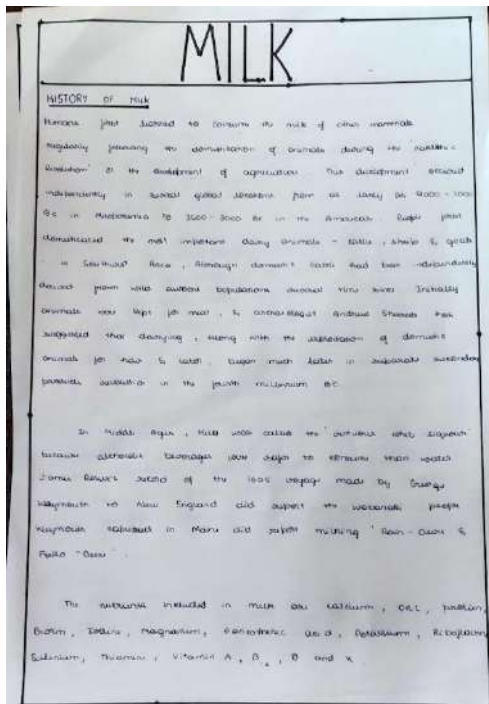 MILK
HISTORY OF MILK
Humans first learned to consume the milk of other mammals
regularly following the domestication of animals during the neolithic
Revolution or the development of agriculture. This development occured
independently in several global locations from as early as 9000-7000
BC in Mesopotamia to 3500-3000 BC in the Americas. People first
domesticated the most important dairy animals - cattle, sheep & goats
- in Southwest Asia, Although domestic cattle had been independently
derived from wild populations several times since. Initially
animals were kept for meat, & archaeologist Andrew Sherratt has
suggested that dairying, along with the exploitation of domestic
animals for hair & labor, began much later in separate secondary
products revolution in the fourth millennium BC.
In Middle Ages, Milk was called the "virtuous white liquor"
because alcoholic beverages were safer to consume than water
James Rosier's record of the 1605 voyage made by George
Weymouth to New England did report the people
Weymouth captured in Maine did report milking "Rain-Deere &
Fallo-Deere".
The nutrients included in milk are calcium, protein,
Biotin, Iodine, Magnesium, Pantothenic acid, Potassium, Riboflavin
Selenium, Thiamine, Vitamin A, B, D and K